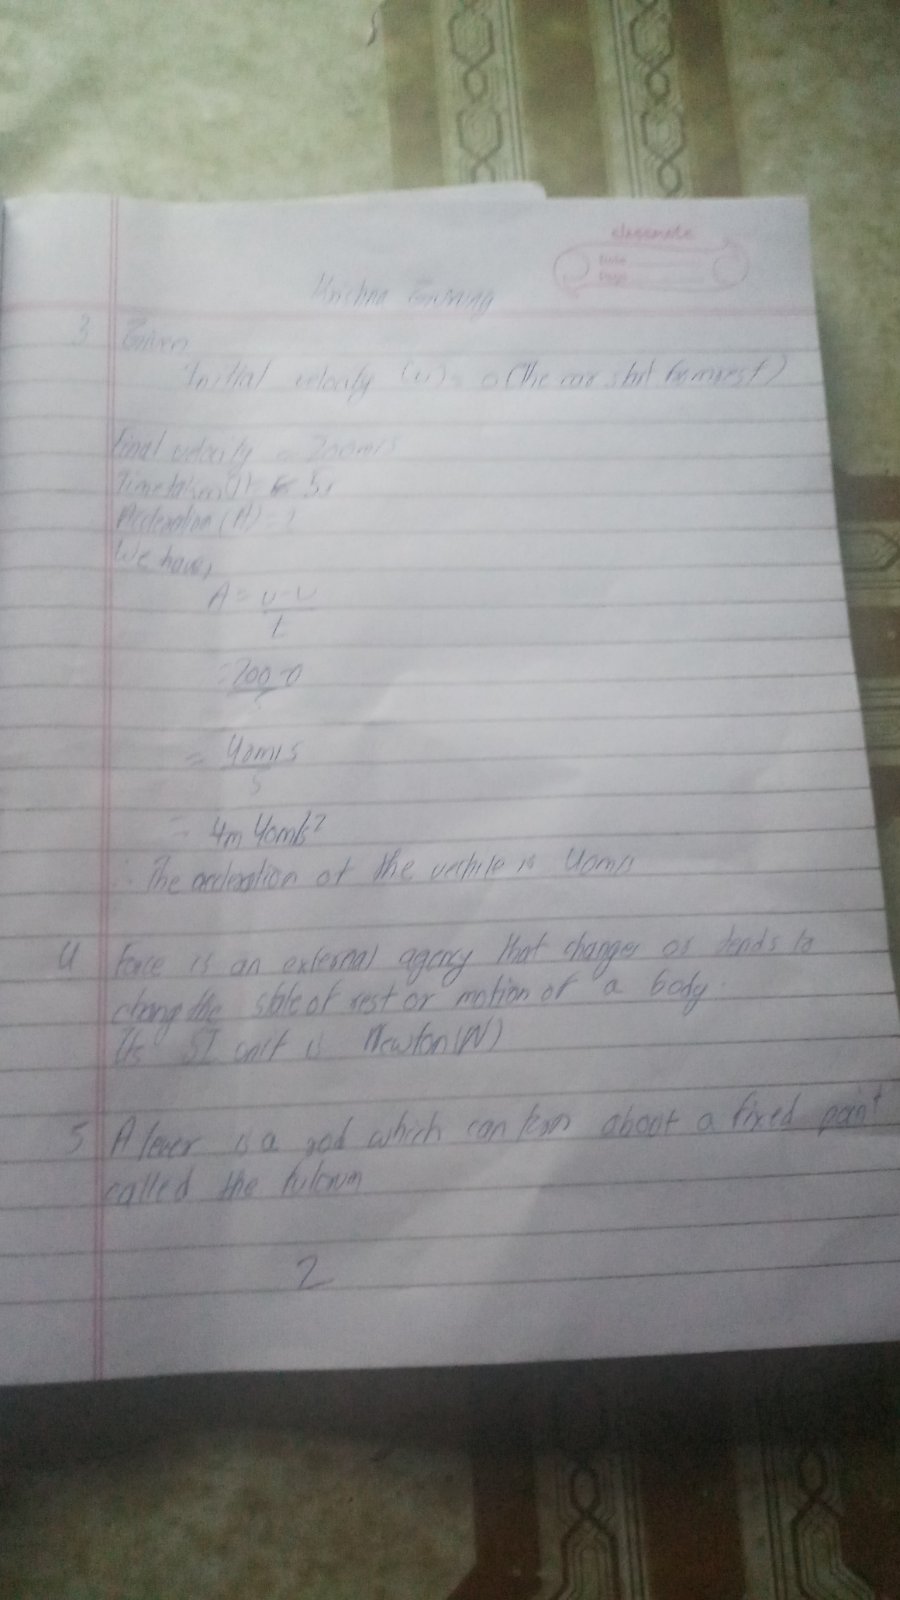 classmate
Date
Page
Krishna Gurung
3 Given
Initial velocity (u) = 0 (The car start from rest)
Final velocity = 200m/s
Time taken (t) = 5s
Accleration (A) = ?
We have,
A = v-u
t
= 200-0
5
= 40m/s
5
= 4m 40m/s²
∴ The accleration of the vechile is 40m/s
4 Force is an external agency that changes or tends to
change the state of rest or motion of a body.
Its SI unit is Newton(N)
5 A lever is a rod which can turn about a fixed point
called the fulcrum
2